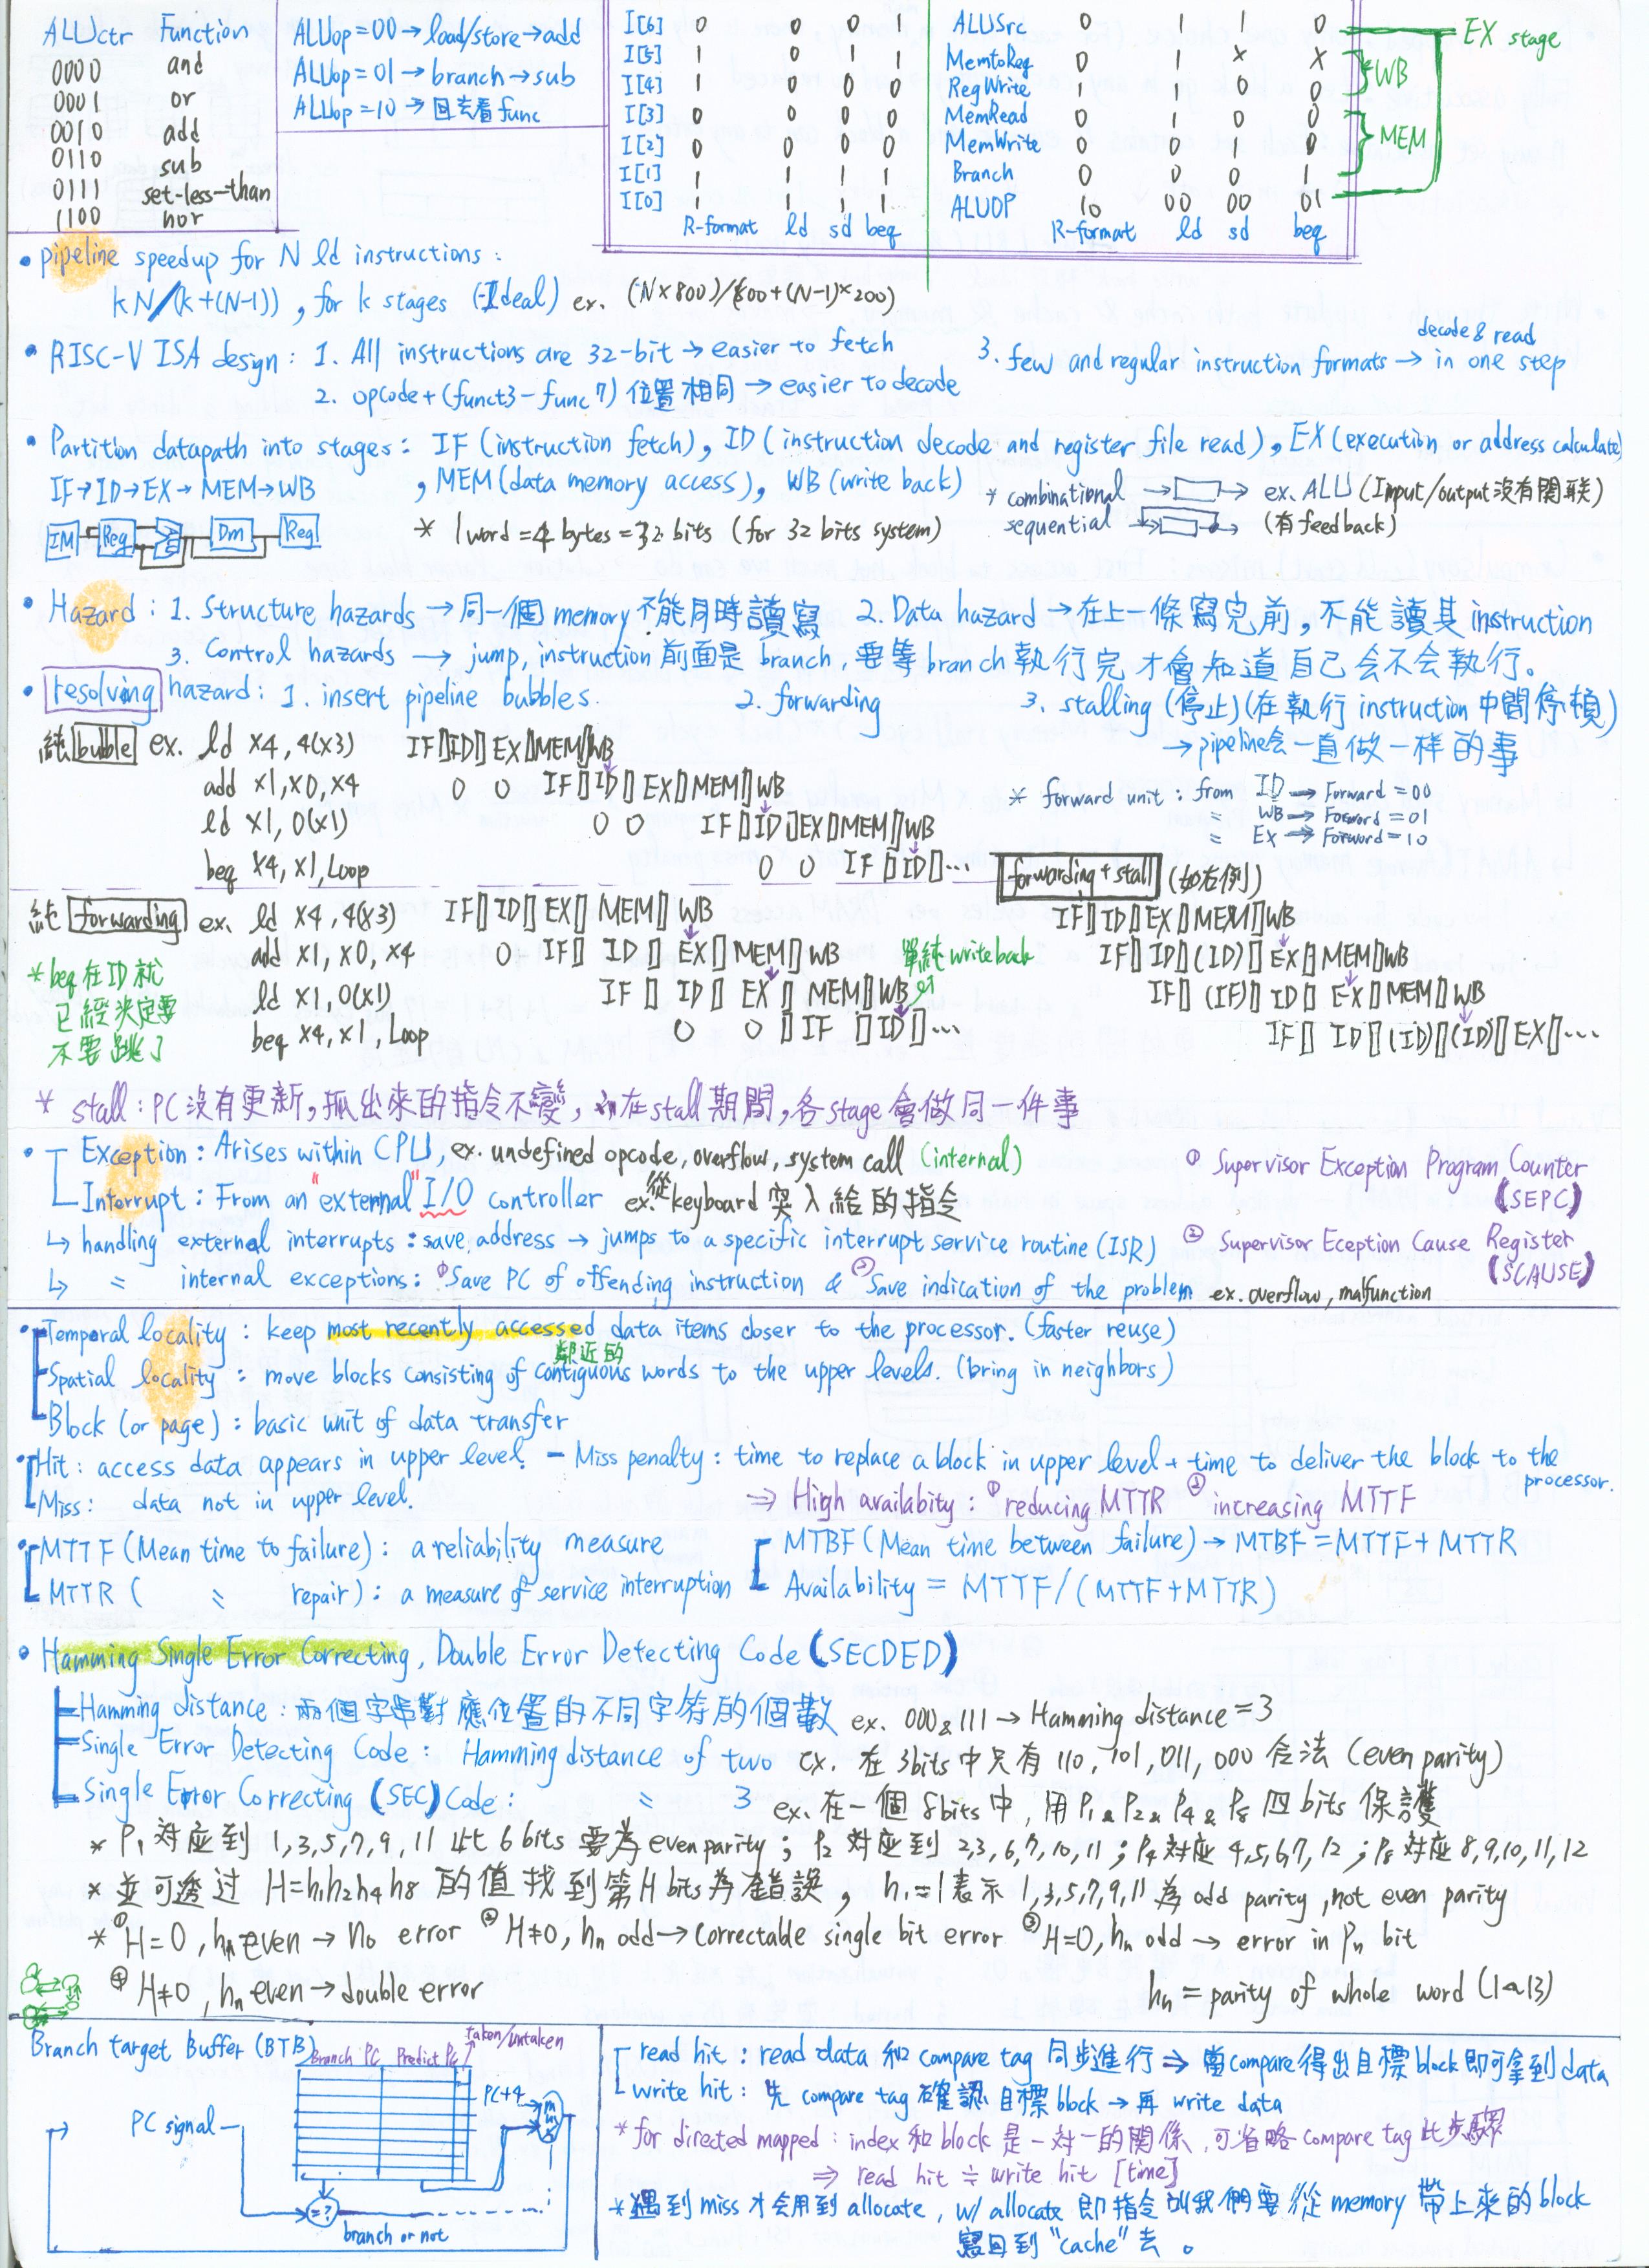 ALUctr Function
0000 and
0001 or
0010 add
0110 sub
0111 set-less-than
1100 nor
ALUop=00→load/store→add
ALUop=01→branch→sub
ALUop=10→回去看func
I[6] 0 0 0 1
I[5] 1 0 1 1
I[4] 1 0 0 0
I[3] 0 0 0 0
I[2] 0 0 0 0
I[1] 1 1 1 1
I[0] 1 1 1 1
R-format ld sd beq
ALUSrc 0 1 1 0
MemtoReg 0 1 x x
RegWrite 1 1 0 0
MemRead 0 1 0 0
MemWrite 0 0 1 0
Branch 0 0 0 1
ALUOP 10 00 00 01
R-format ld sd beq
EX stage
WB
MEM
• pipeline speedup for N ld instructions:
kN/(k+(N-1)), for k stages (Ideal) ex. (N×800)/800+(N-1)×200)
• RISC-V ISA design: 1. All instructions are 32-bit → easier to fetch
2. opcode+(funct3-func7)位置相同 → easier to decode
3. few and regular instruction formats → decode & read in one step
• Partition datapath into stages: IF (instruction fetch), ID (instruction decode and register file read), EX (execution or address calculate)
IF→ID→EX→MEM→WB , MEM (data memory access), WB (write back)
IM Reg Dm Reg
* 1 word = 4 bytes = 32 bits (for 32 bits system)
* combinational → → ex. ALU (Input/output沒有関联)
sequential → → (有feedback)
• Hazard: 1. Structure hazards → 同一個memory不能同時讀寫 2. Data hazard → 在上一條寫完前,不能讀其instruction
3. Control hazards → jump, instruction前面是branch, 要等branch執行完才會知道自己会不会執行。
• resolving hazard: 1. insert pipeline bubbles. 2. forwarding 3. stalling (停止)(在執行instruction中間停頓)
→ pipeline会一直做一样的事
純bubble ex. ld x4, 4(x3) IF[]ID[]EX[]MEM[]WB
add x1, x0, x4 0 0 IF[]ID[]EX[]MEM[]WB
ld x1, 0(x1) 0 0 IF[]ID[]EX[]MEM[]WB
beq x4, x1, Loop 0 0 IF[]ID[]...
* forward unit: from ID → Forward=00
〃 WB → Forword=01
〃 EX → Forward=10
純forwarding ex. ld x4, 4(x3) IF[]ID[]EX[]MEM[]WB
add x1, x0, x4 0 IF[]ID[]EX[]MEM[]WB
ld x1, 0(x1) IF[]ID[]EX[]MEM[]WB
beq x4, x1, Loop 0 0[]IF[]ID[]...
單純writeback
* beq在ID就
已經決定要
不要跳了
forwarding+stall (如左例)
IF[]ID[]EX[]MEM[]WB
IF[]ID[](ID)[]EX[]MEM[]WB
IF[](IF)[]ID[]EX[]MEM[]WB
IF[]ID[](ID)[](ID)[]EX[]...
* stall: PC沒有更新,抓出來的指令不變, 在stall期間,各stage會做同一件事
• Exception: Arises within CPU, ex. undefined opcode, overflow, system call (internal)
Interrupt: From an "external" I/O controller ex. 從keyboard突入給的指令
① Supervisor Exception Program Counter
(SEPC)
↳ handling external interrupts: save address → jumps to a specific interrupt service routine (ISR)
② Supervisor Eception Cause Register
(SCAUSE)
↳ 〃 internal exceptions: ①Save PC of offending instruction & ②Save indication of the problem ex. overflow, malfunction
• Temporal locality: keep most recently accessed data items closer to the processor. (faster reuse)
鄰近的
Spatial locality: move blocks consisting of contiguous words to the upper levels. (bring in neighbors)
Block (or page): basic unit of data transfer
• Hit: access data appears in upper level. – Miss penalty: time to replace a block in upper level + time to deliver the block to the processor.
Miss: data not in upper level.
⇒ High availabity: ① reducing MTTR ② increasing MTTF
• MTTF (Mean time to failure): a reliability measure
MTTR ( 〃 repair): a measure of service interruption
MTBF (Mean time between failure) → MTBF = MTTF + MTTR
Availability = MTTF/(MTTF+MTTR)
• Hamming Single Error Correcting, Double Error Detecting Code (SECDED)
Hamming distance: 兩個字串對應位置的不同字符的個數 ex. 000 & 111 → Hamming distance = 3
Single Error Detecting Code: Hamming distance of two ex. 在3bits中只有110, 101, 011, 000合法 (even parity)
Single Error Correcting (SEC) Code: 〃 3 ex. 在一個8bits中, 用P1 & P2 & P4 & P8四bits保護
* P1対应到1,3,5,7,9,11此6bits要為even parity; P2対应到2,3,6,7,10,11; P4対应4,5,6,7,12; P8対应8,9,10,11,12
* 並可透过H=h1h2h4h8的值找到第H bits為錯誤, h1=1表示1,3,5,7,9,11為odd parity, not even parity
* ①H=0, hn even → no error ②H≠0, hn odd → correctable single bit error ③H=0, hn odd → error in Pn bit
④H≠0, hn even → double error
hn = parity of whole word (1~13)
Branch target Buffer (BTB)
Branch PC Predict PC taken/untaken
PC+4
mux
PC signal
=?
branch or not
read hit: read data和compare tag同步進行 ⇒ 當compare得出目標block即可拿到data
write hit: 先compare tag確認目標block → 再write data
* for directed mapped: index和block是一対一的関係, 可省略compare tag此步驟
⇒ read hit ≒ write hit [time]
* 遇到miss才会用到allocate, w/ allocate即指令叫我們要從memory帶上來的block
寫回到"cache"去。